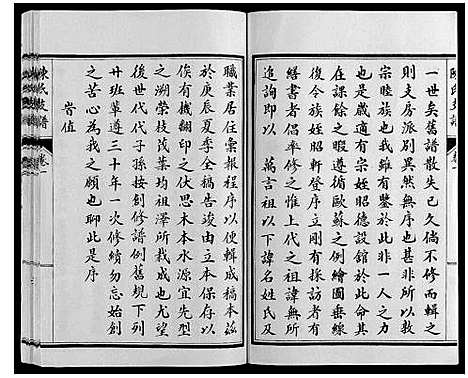 一世矣舊譜散失已久倘不修而輯之
則支房派別異然無序甚非所以敦
宗睦族也我雖有鑒於此非一人之
也是歲適有宗姪昭德設館於此命其
在課餘之暇遵循歐蘇之例繪圖垂線
復令族姪昭軒登序立剛有採訪者有
繕書者侣率修惟上代之祖諱無所
追詢即以 萬言祖以下諱名姓氏及
職業居住彙報程序以便輯成稿本茲
於庚辰夏季全稿告竣由立本保存以
俟有機翻印之伏思木本水源宜先型
之溯榮枝茂葉均祖澤所著也尤望
後世代代子孫按創修譜例舊規下列
廿班輩遵三十年一次修續勿忘始創
之苦心為我之願也聊此是序
時值
陳氏支譜
卷一